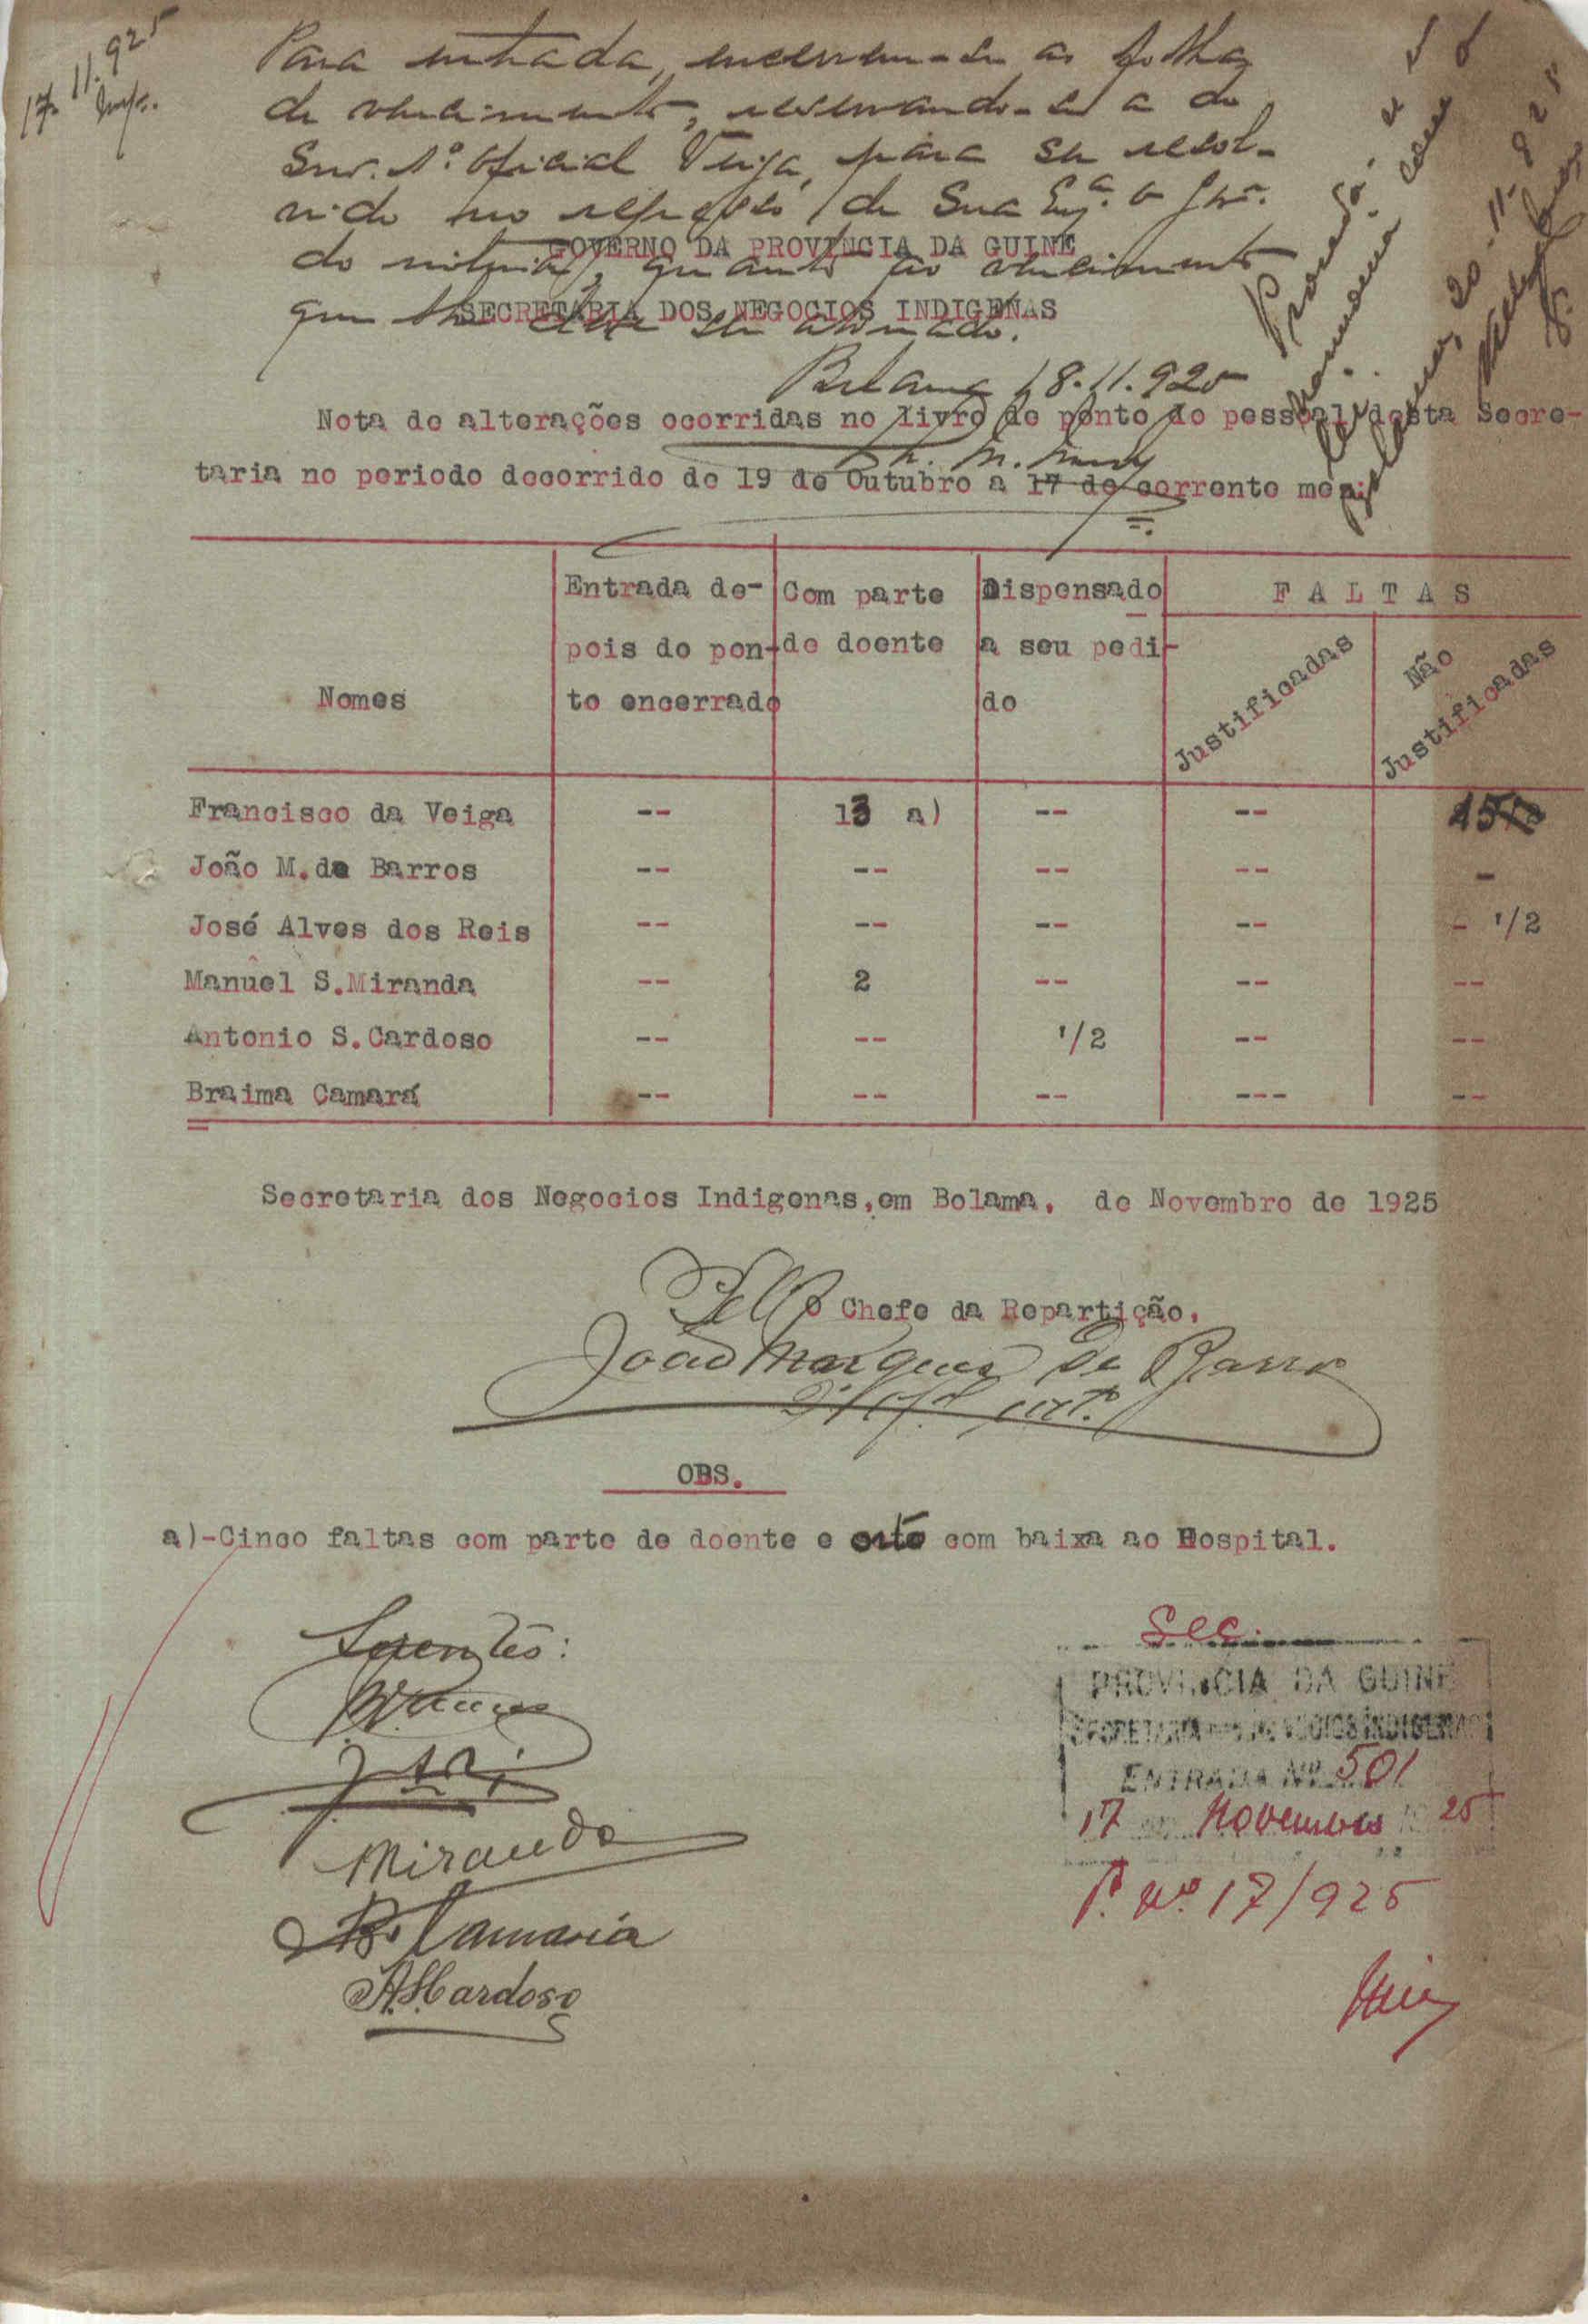 17.11.925
Para entrada, encerrem-se as folhas
de vencimento, reservando-se a do
Snr. 1º. Oficial Veiga, para ser resol-
vido no regresso de Sua Exª. o
do interior, quanto ao vencimento
que lhe deve ser abonado.
Bolama 18.11.925
20-11-925
GOVERNO DA PROVINCIA DA GUINÉ
SECRETARIA DOS NEGOCIOS INDIGENAS
Nota de alterações ocorridas no livro de ponto do pessoal desta Secre-
taria no periodo decorrido de 19 de Outubro a 17 do corrente mês:
Nomes
Entrada de-
pois do pon-
to encerrado
Com parte
de doente
Dispensado
a seu pedi-
do
FALTAS
Justificadas
Não
Justificadas
Francisco da Veiga -- 13 a) -- --
João M. de Barros -- -- -- -- -
José Alves dos Reis -- -- -- -- - 1/2
Manuel S.Miranda -- 2 -- -- --
Antonio S.Cardoso -- -- 1/2 -- --
Braima Camará -- -- -- --- --
Secretaria dos Negocios Indigenas,em Bolama, de Novembro de 1925
Pelo Chefe da Repartição,
João Marques de Barros
2º int.º
OBS.
a)-Cinco faltas com parte de doente e oito com baixa ao Hospital.
Scientes:
Miranda
B. Camará
A.S.Cardoso
Sec.
PROVINCIA DA GUINÉ
SECRETARIA DOS NEGOCIOS INDIGENAS
ENTRADA Nº 501
17 de Novembro 1925
P. nº 17/925